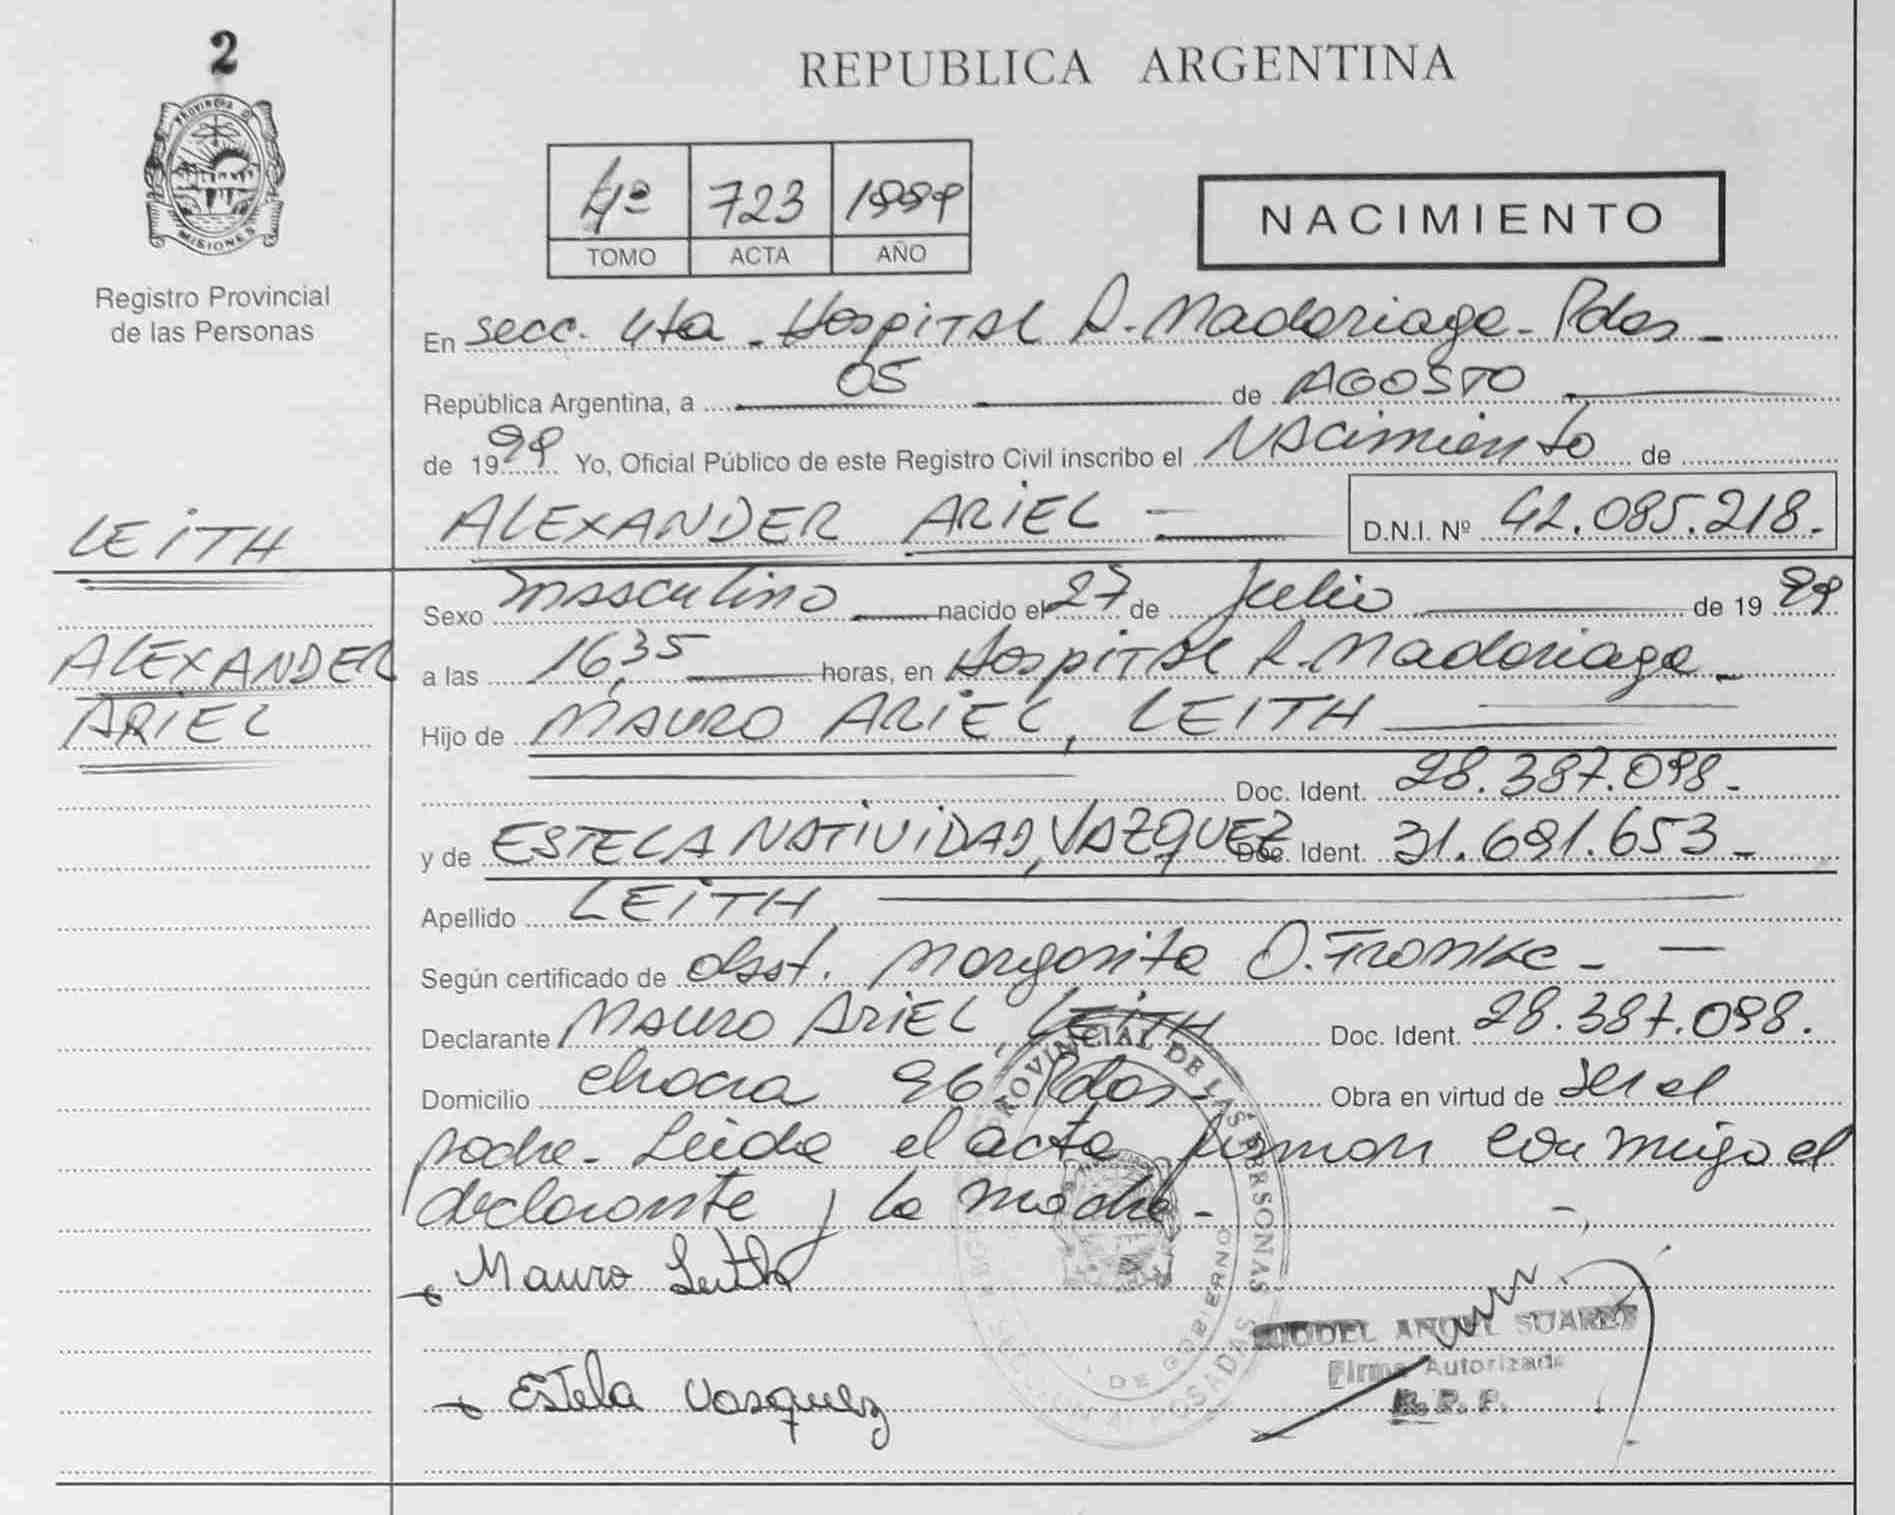 2
PROVINCIA DE
MISIONES
Registro Provincial
de las Personas
REPUBLICA ARGENTINA
4º 723 1999
TOMO ACTA AÑO
NACIMIENTO
En secc. 4ta - Hospital R. Madariaga - Pdas -
República Argentina, a 05 de AGOSTO
de 1999 Yo, Oficial Público de este Registro Civil inscribo el Nacimiento de
LEITH
ALEXANDER ARIEL - D.N.I. Nº 42.085.218.
Sexo masculino nacido el 27 de Julio de 1999
ALEXANDER
ARIEL
a las 16,35 horas, en Hospital R. Madariaga -
Hijo de MAURO ARIEL, LEITH
Doc. Ident. 28.387.098 -
y de ESTELA NATIVIDAD, VAZQUEZ Doc. Ident. 31.691.653 -
Apellido LEITH
Según certificado de obst. Margarita O. Franke - -
Declarante MAURO ARIEL LEITH Doc. Ident. 28.387.098.
Domicilio chacra 96 Pdas - Obra en virtud de ser el
padre - Leida el acta firman conmigo el
declarante y la madre -
Mauro Leith
Estela Vasquez
PROVINCIAL DE LAS PERSONAS
DE GOBIERNO
POSADAS
ANGEL SUAREZ
Firma Autorizada
R. P. P.